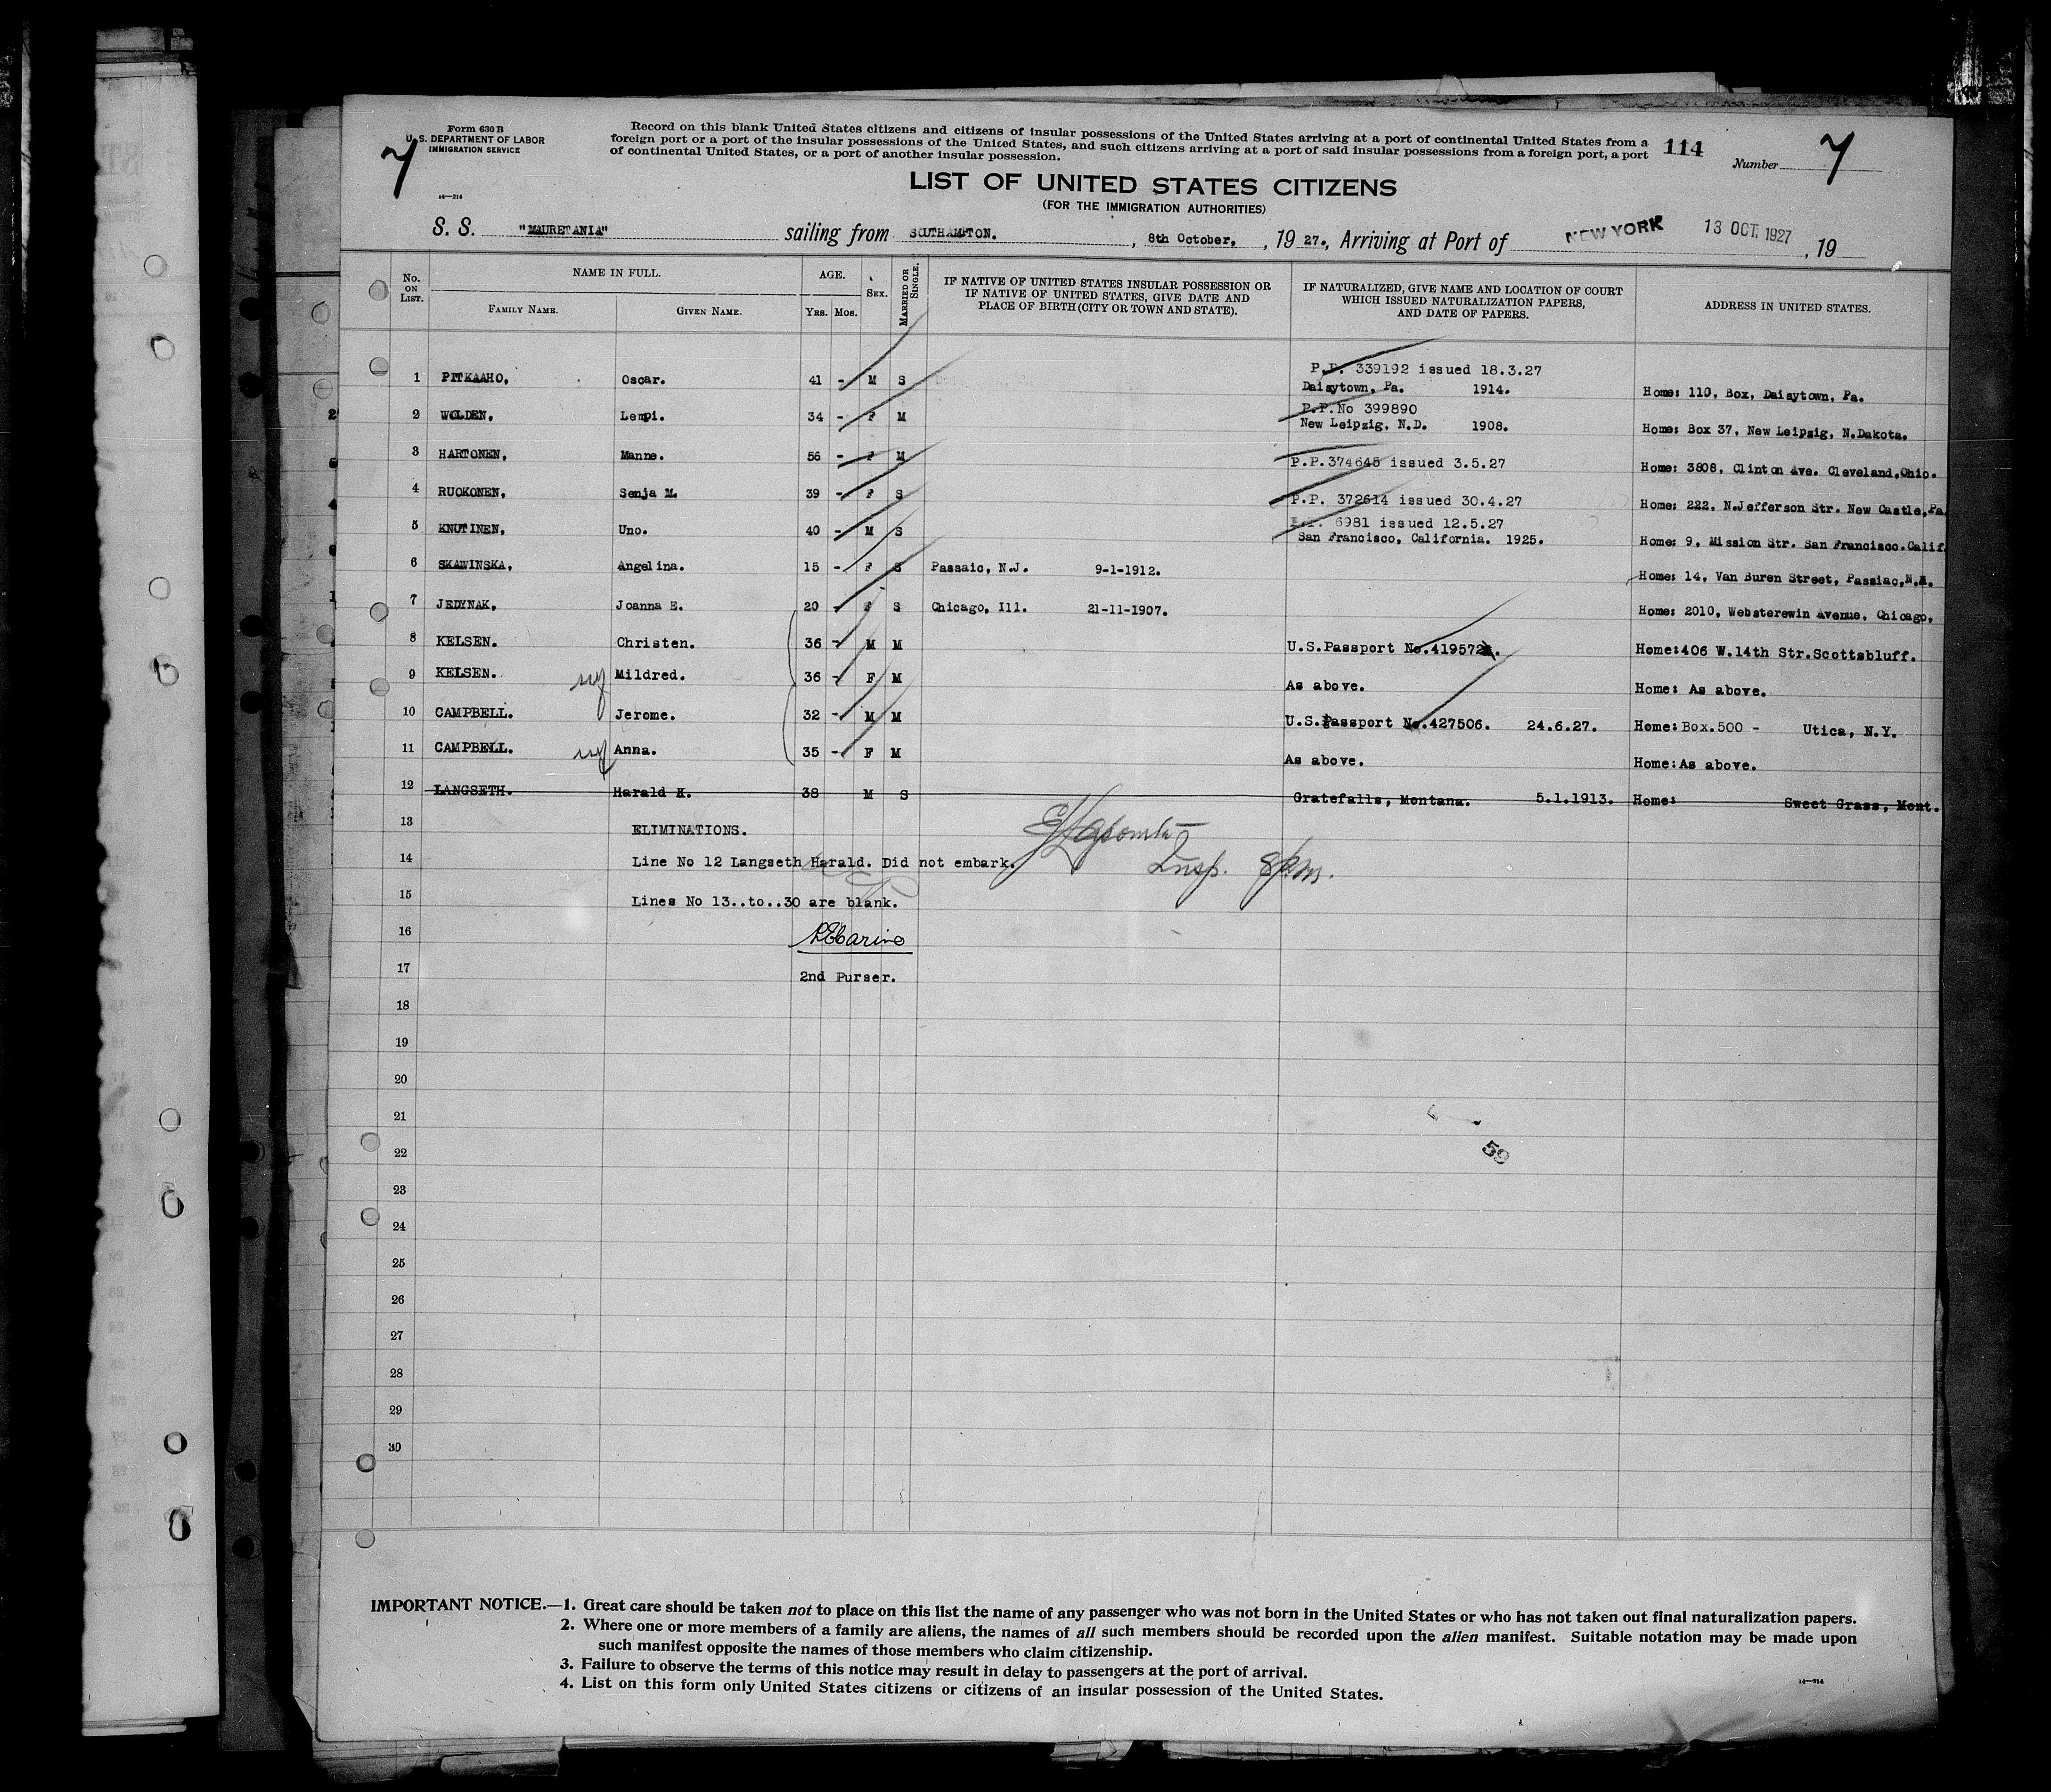 Form 630 B
U. S. DEPARTMENT OF LABOR
IMMIGRATION SERVICE
7
16—214
Record on this blank United States citizens and citizens of insular possessions of the United States arriving at a port of continental United States from a
foreign port or a port of the insular possessions of the United States, and such citizens arriving at a port of said insular possessions from a foreign port, a port
of continental United States, or a port of another insular possession.
114
Number 7
LIST OF UNITED STATES CITIZENS
(FOR THE IMMIGRATION AUTHORITIES)
S. S. "MAURETANIA" sailing from SOUTHAMPTON. , 8th October, , 19 27., Arriving at Port of NEW YORK 13 OCT. 1927 , 19
No. ON LIST. NAME IN FULL. AGE. SEX. MARRIED OR SINGLE. IF NATIVE OF UNITED STATES INSULAR POSSESSION OR IF NATIVE OF UNITED STATES, GIVE DATE AND PLACE OF BIRTH (CITY OR TOWN AND STATE). IF NATURALIZED, GIVE NAME AND LOCATION OF COURT WHICH ISSUED NATURALIZATION PAPERS, AND DATE OF PAPERS. ADDRESS IN UNITED STATES.
FAMILY NAME. GIVEN NAME. YRS. MOS.
P.P. 339192 issued 18.3.27
1 PITKAAHO, Oscar. 41 - M S Daisytown, Pa. 1914. Home: 110, Box, Daisytown, Pa.
P.P.No 399890
2 WOLDEN, Lempi. 34 - F M New Leipzig, N.D. 1908. Home: Box 37, New Leipzig, N.Dakota.
3 HARTONEN, Manne. 56 - F M P.P.374645 issued 3.5.27 Home: 3808, Clinton Ave. Cleveland,Ohio.
4 RUOKONEN, Senja M. 39 - F S P.P. 372614 issued 30.4.27 Home: 222, N.Jefferson Str. New Castle,Pa.
P.P. 6981 issued 12.5.27
5 KNUTINEN, Uno. 40 - M S San Francisco, California. 1925. Home: 9, Mission Str. San Francisco.Calif.
6 SKAWINSKA, Angelina. 15 - F S Passaic, N.J. 9-1-1912. Home: 14, Van Buren Street, Passiac,N.J.
7 JEDYNAK, Joanna E. 20 - F S Chicago, Ill. 21-11-1907. Home: 2010, Websterewin Avenue, Chicago,
8 KELSEN. Christen. 36 - M M U.S.Passport No.419572. Home:406 W.14th Str.Scottsbluff.
9 KELSEN. Mildred. 36 - F M As above. Home: As above.
10 CAMPBELL. Jerome. 32 - M M U.S.Passport No.427506. 24.6.27. Home:Box.500 - Utica, N.Y.
11 CAMPBELL. Anna. 35 - F M As above. Home:As above.
12 LANGSETH. Harald K. 38 M S Gratefalls, Montana. 5.1.1913. Home: Sweet Grass, Mont.
13 ELIMINATIONS.
14 Line No 12 Langseth Harald. Did not embark. Insp.
15 Lines No 13..to..30 are blank.
16
17 2nd Purser.
18
19
20
21
22
59
23
24
25
26
27
28
29
30
IMPORTANT NOTICE.—1. Great care should be taken not to place on this list the name of any passenger who was not born in the United States or who has not taken out final naturalization papers.
2. Where one or more members of a family are aliens, the names of all such members should be recorded upon the alien manifest. Suitable notation may be made upon
such manifest opposite the names of those members who claim citizenship.
3. Failure to observe the terms of this notice may result in delay to passengers at the port of arrival.
4. List on this form only United States citizens or citizens of an insular possession of the United States.
14—214